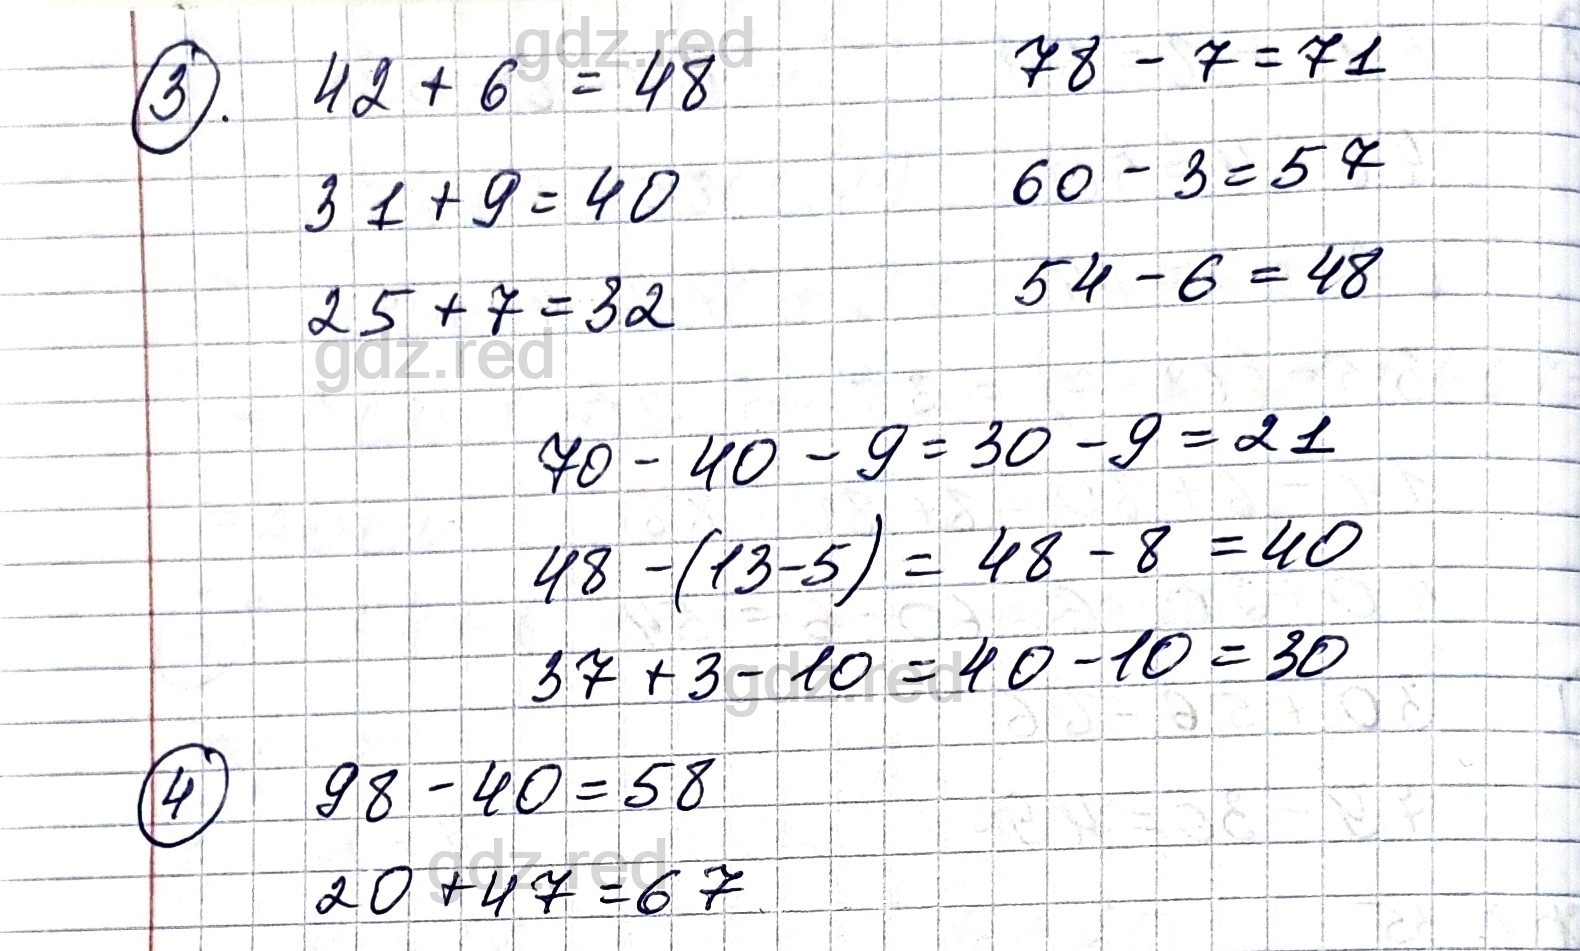 gdz.red
③. 42 + 6 = 48 78 - 7 = 71
31 + 9 = 40 60 - 3 = 57
25 + 7 = 32 54 - 6 = 48
gdz.red
70 - 40 - 9 = 30 - 9 = 21
48 - (13 - 5) = 48 - 8 = 40
37 + 3 - 10 = 40 - 10 = 30
gdz.red
④ 98 - 40 = 58
gdz.red
20 + 47 = 67